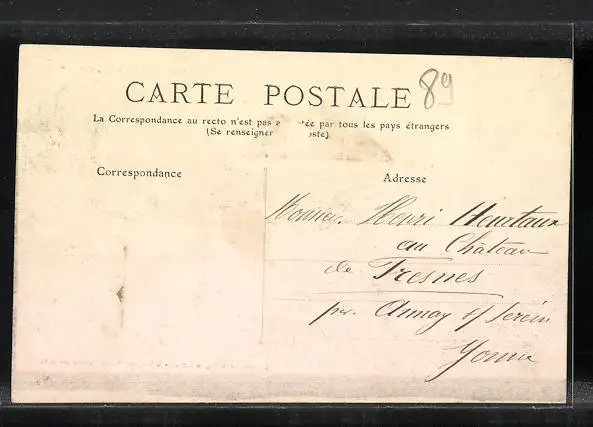 CARTE POSTALE
89
La Correspondance au recto n'est pas a tée par tous les pays étrangers
(Se renseigner oste)
Correspondance
Adresse
Henri Heurtaux
au Château
de Fresnes
par Annay s/ Serein
Yonne